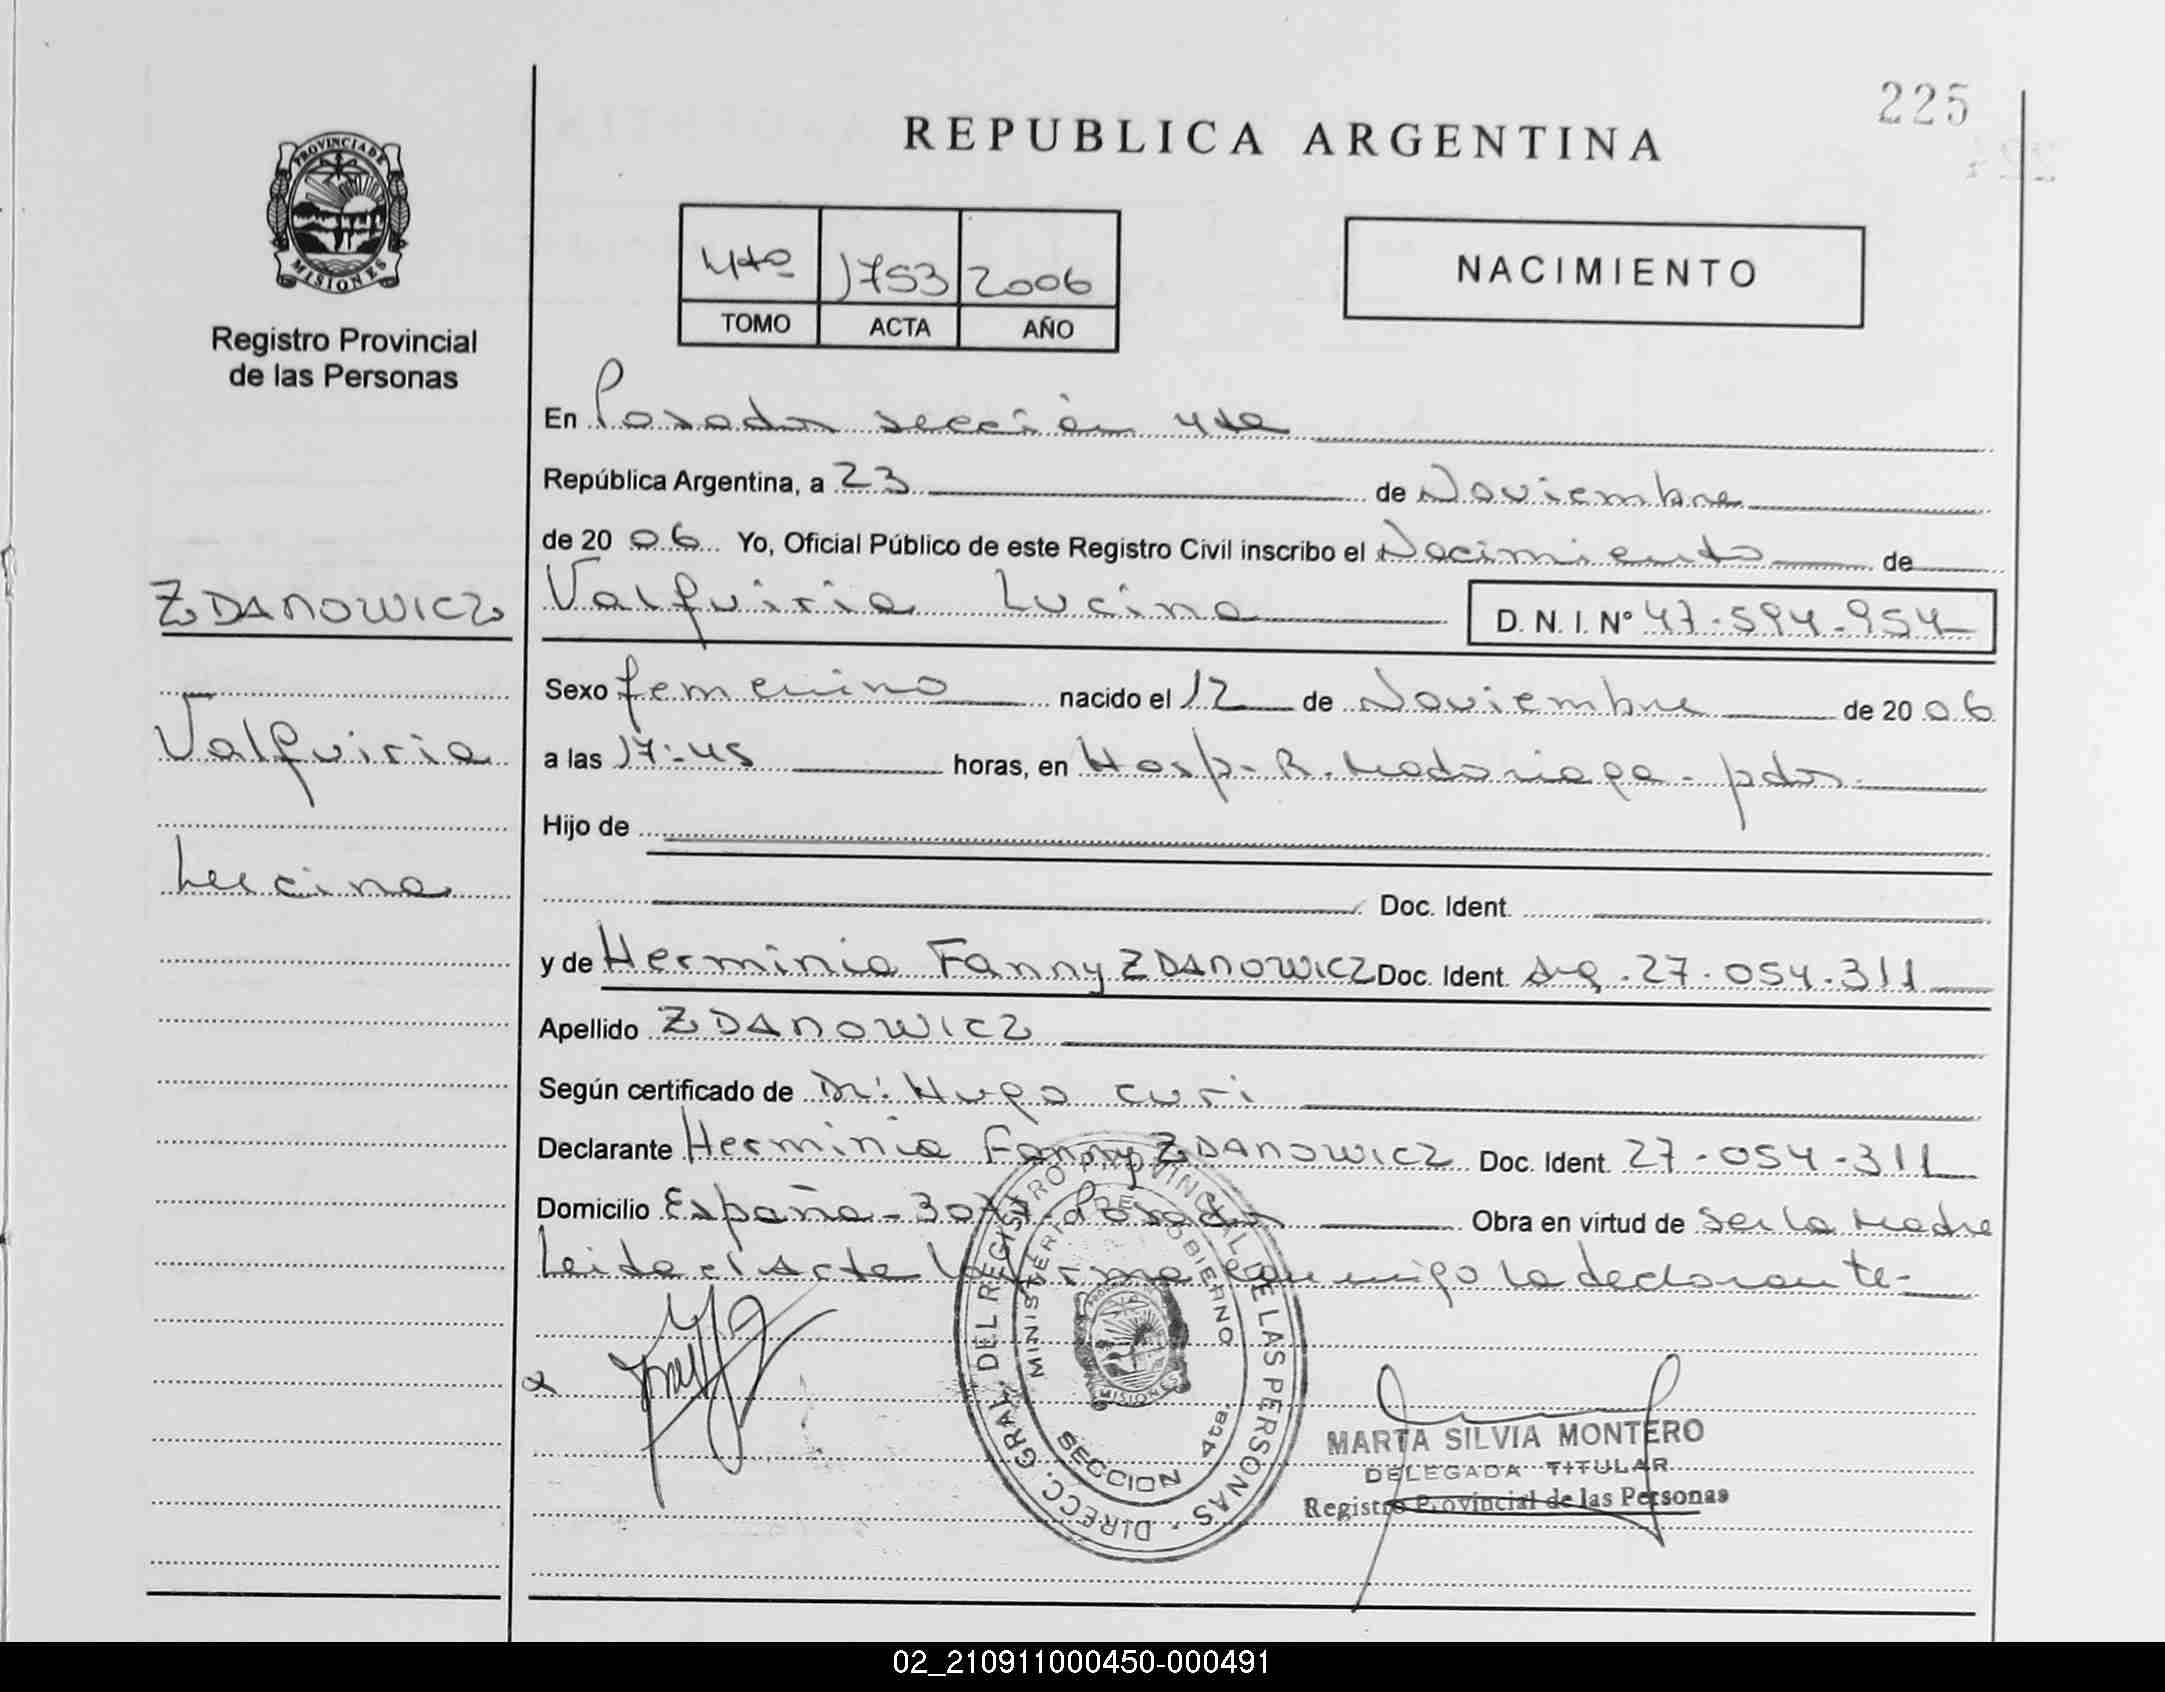 225
REPUBLICA ARGENTINA
PROVINCIA DE
MISIONES
Registro Provincial
de las Personas
4to 1753 2006
TOMO ACTA AÑO
NACIMIENTO
En Posadas sección 4ta
República Argentina, a 23 de Noviembre
de 20 06 Yo, Oficial Público de este Registro Civil inscribo el Nacimiento de
ZDANOWICZ
Valquiria Lucina D. N. I. Nº 47.594.954
Sexo femenino nacido el 12 de Noviembre de 20 06
Valquiria
a las 17:45 horas, en Hosp. R. Madariaga - pdas.
Hijo de
Lucina
Doc. Ident.
y de Herminia Fanny ZDANOWICZ Doc. Ident. Arg. 27.054.311
Apellido ZDANOWICZ
Según certificado de Dr: Hugo Curi
Declarante Herminia Fanny ZDANOWICZ Doc. Ident. 27.054.311
Domicilio España - 3077 - Posadas Obra en virtud de Ser la Madre
Leida el Acta la firma conmigo la declarante -
DIRECC. GRAL. DEL REGISTRO PROVINCIAL DE LAS PERSONAS
MINISTERIO DE GOBIERNO
MISIONES
SECCION 4ta.
MARTA SILVIA MONTERO
DELEGADA TITULAR
Registro Provincial de las Personas
02_210911000450-000491